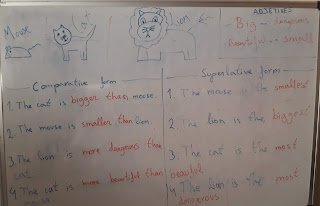 Mouse
cat
Lion
ADJECTIVES
Big - dangerous
Beautiful - small
Comparative form
1. The cat is bigger than mouse.
2. The mouse is smaller than lion.
3. The lion is more dangerous than
cat
4. The cat is more beautiful than
mouse
Superlative form
1. The mouse is the smallest
2. The lion is the biggest
3. The cat is the most
beautiful
4. The lion is the most
dangerous.